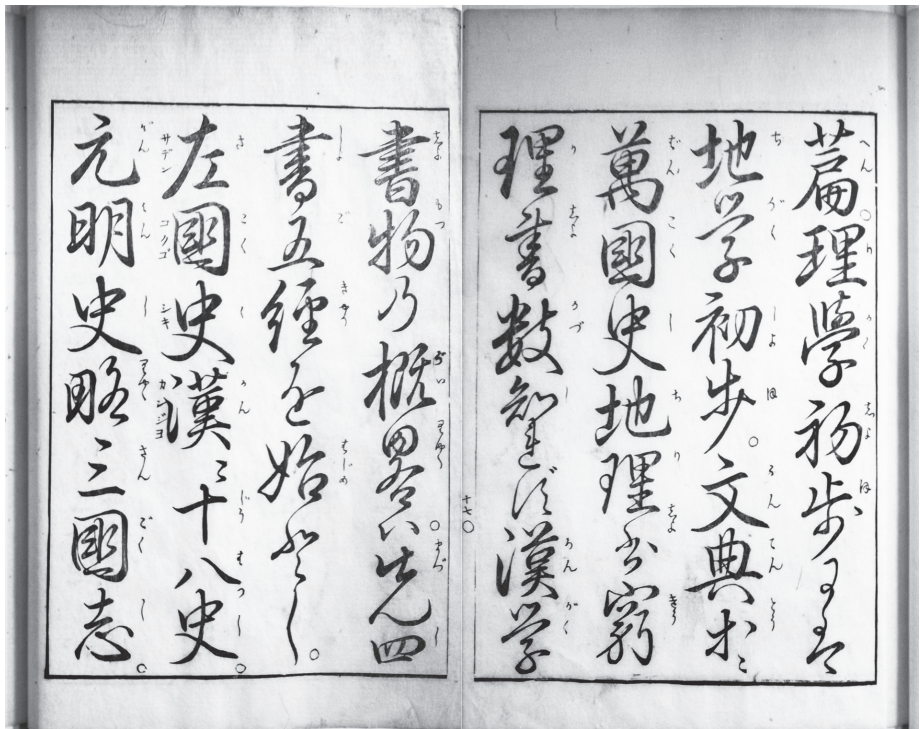 篇。理學初歩
地学初歩。文典等ニ
萬國史地理書窮
理書数知れず漢学
十七
書物乃概畧ハ。先四
書五經を始とし。
左國史漢ニ十八史。
元明史略三國志。